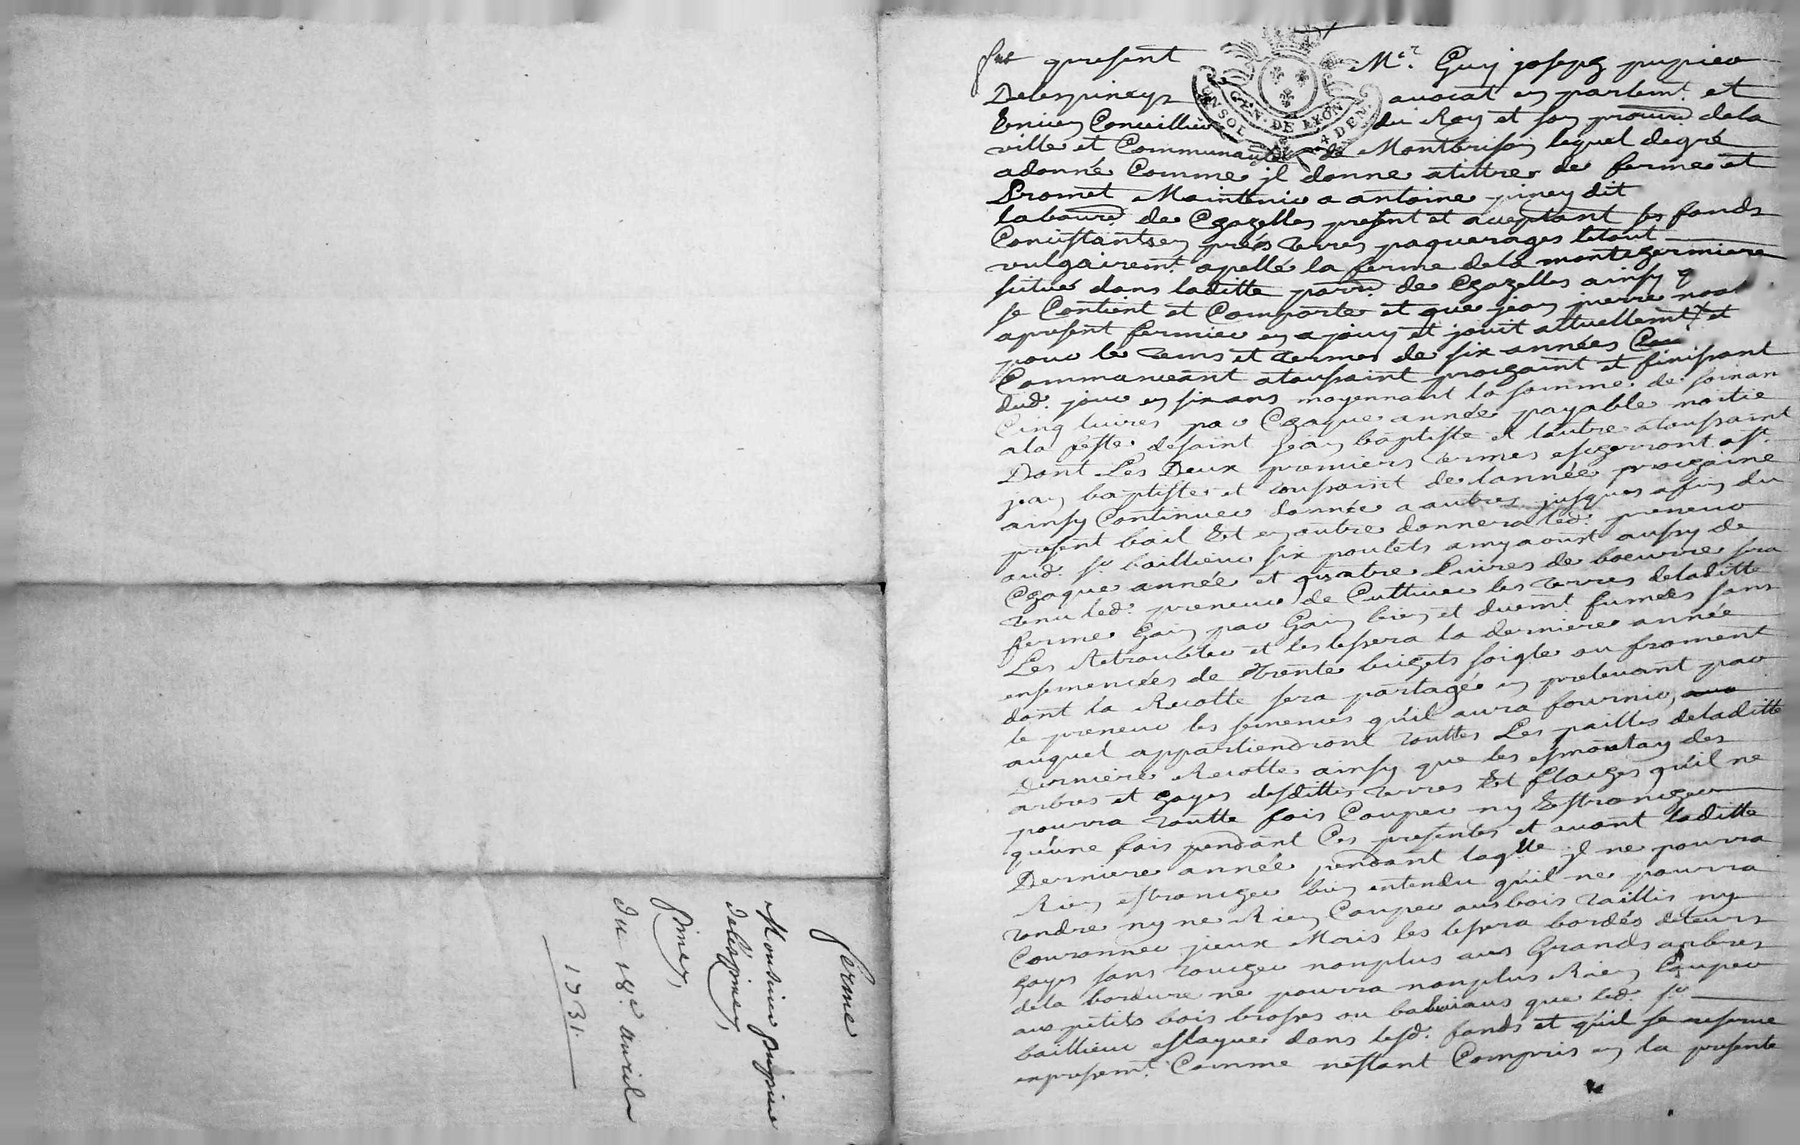 fut présent Mr. Guy joseph pupier
Delespinays avocat en parlemt. et
Entien Conceillier du Roy et son procurr. de la
ville et Communauté de Montbrison lequel de gré
a donné Comme il donne a tittre de ferme et
Promet Maintenir a antoine piney dit
labourd. de Chazelles présent et aceptant ses fonds
Concistants en prés terres paquerages le tout
vulgairemt. apellé la ferme de la montegermiere
situé dans laditte parr. de Chazelles ainsy q
se Contient et Comporte et que jean pierre
apresent fermier en a jouy et jouit attuellemt. et
pour le tems et termes de six années
Commanceant a tousaint prochaint et finissant
dud. jour en six ans moyennant la somme de soixan
Cinq livres par Chaque année payable moitié
a la feste de saint jean baptiste et lautre a tousaint
Dont Les Deux premiers termes escherront a st.
jean baptiste et tousaint de lannée prochaine
ainsy Continuer dannée a autres jusques a fin du
present bail Et en outre donnera led. preneur
aud. sr. baillieur six poulets a my aoust aussy de
Chaque année et quatre Livres de boeurre sera
tenu led. preneur de Cultiver les terres de laditte
ferme Gain par Gain bien et duemt. fumées sans
Les Retroubler et les lessera la derniere année
ensemencées de trente bichets soigle ou froment
dont la Recolte sera partagée en prelevant par
le preneur les semences qu'il aura fournir,
auquel appartiendront touttes Les pailles de laditte
Derniere Recolte ainsy que les esmontay des
arbres et hayes desdittes terres Et qu'il ne
pourra toutte fois Couper ny Estroncher
qu'une fois pendant Ces presentes et avant laditte
Derniere année pendant laqlle. il ne pourra
Rien estroncher bien entendu qu'il ne pourra
tondre ny ne Rien Couper aus bois taillis ny
Couronner jieux Mais les lessera bordés de leurs
hayes sans toucher nonplus aus Grands arbres
de la bordure ne pourra nonplus Rien Couper
aus petits bois broses ou baliviaus que led. sr.
baillieur eslaque dans lesd. fonds et qu'il se reserve
expressemt. Comme nestant Compris en la presente
ferme
Monsieur pupier
delespiney,
piney,
du 18e. avril
1731.